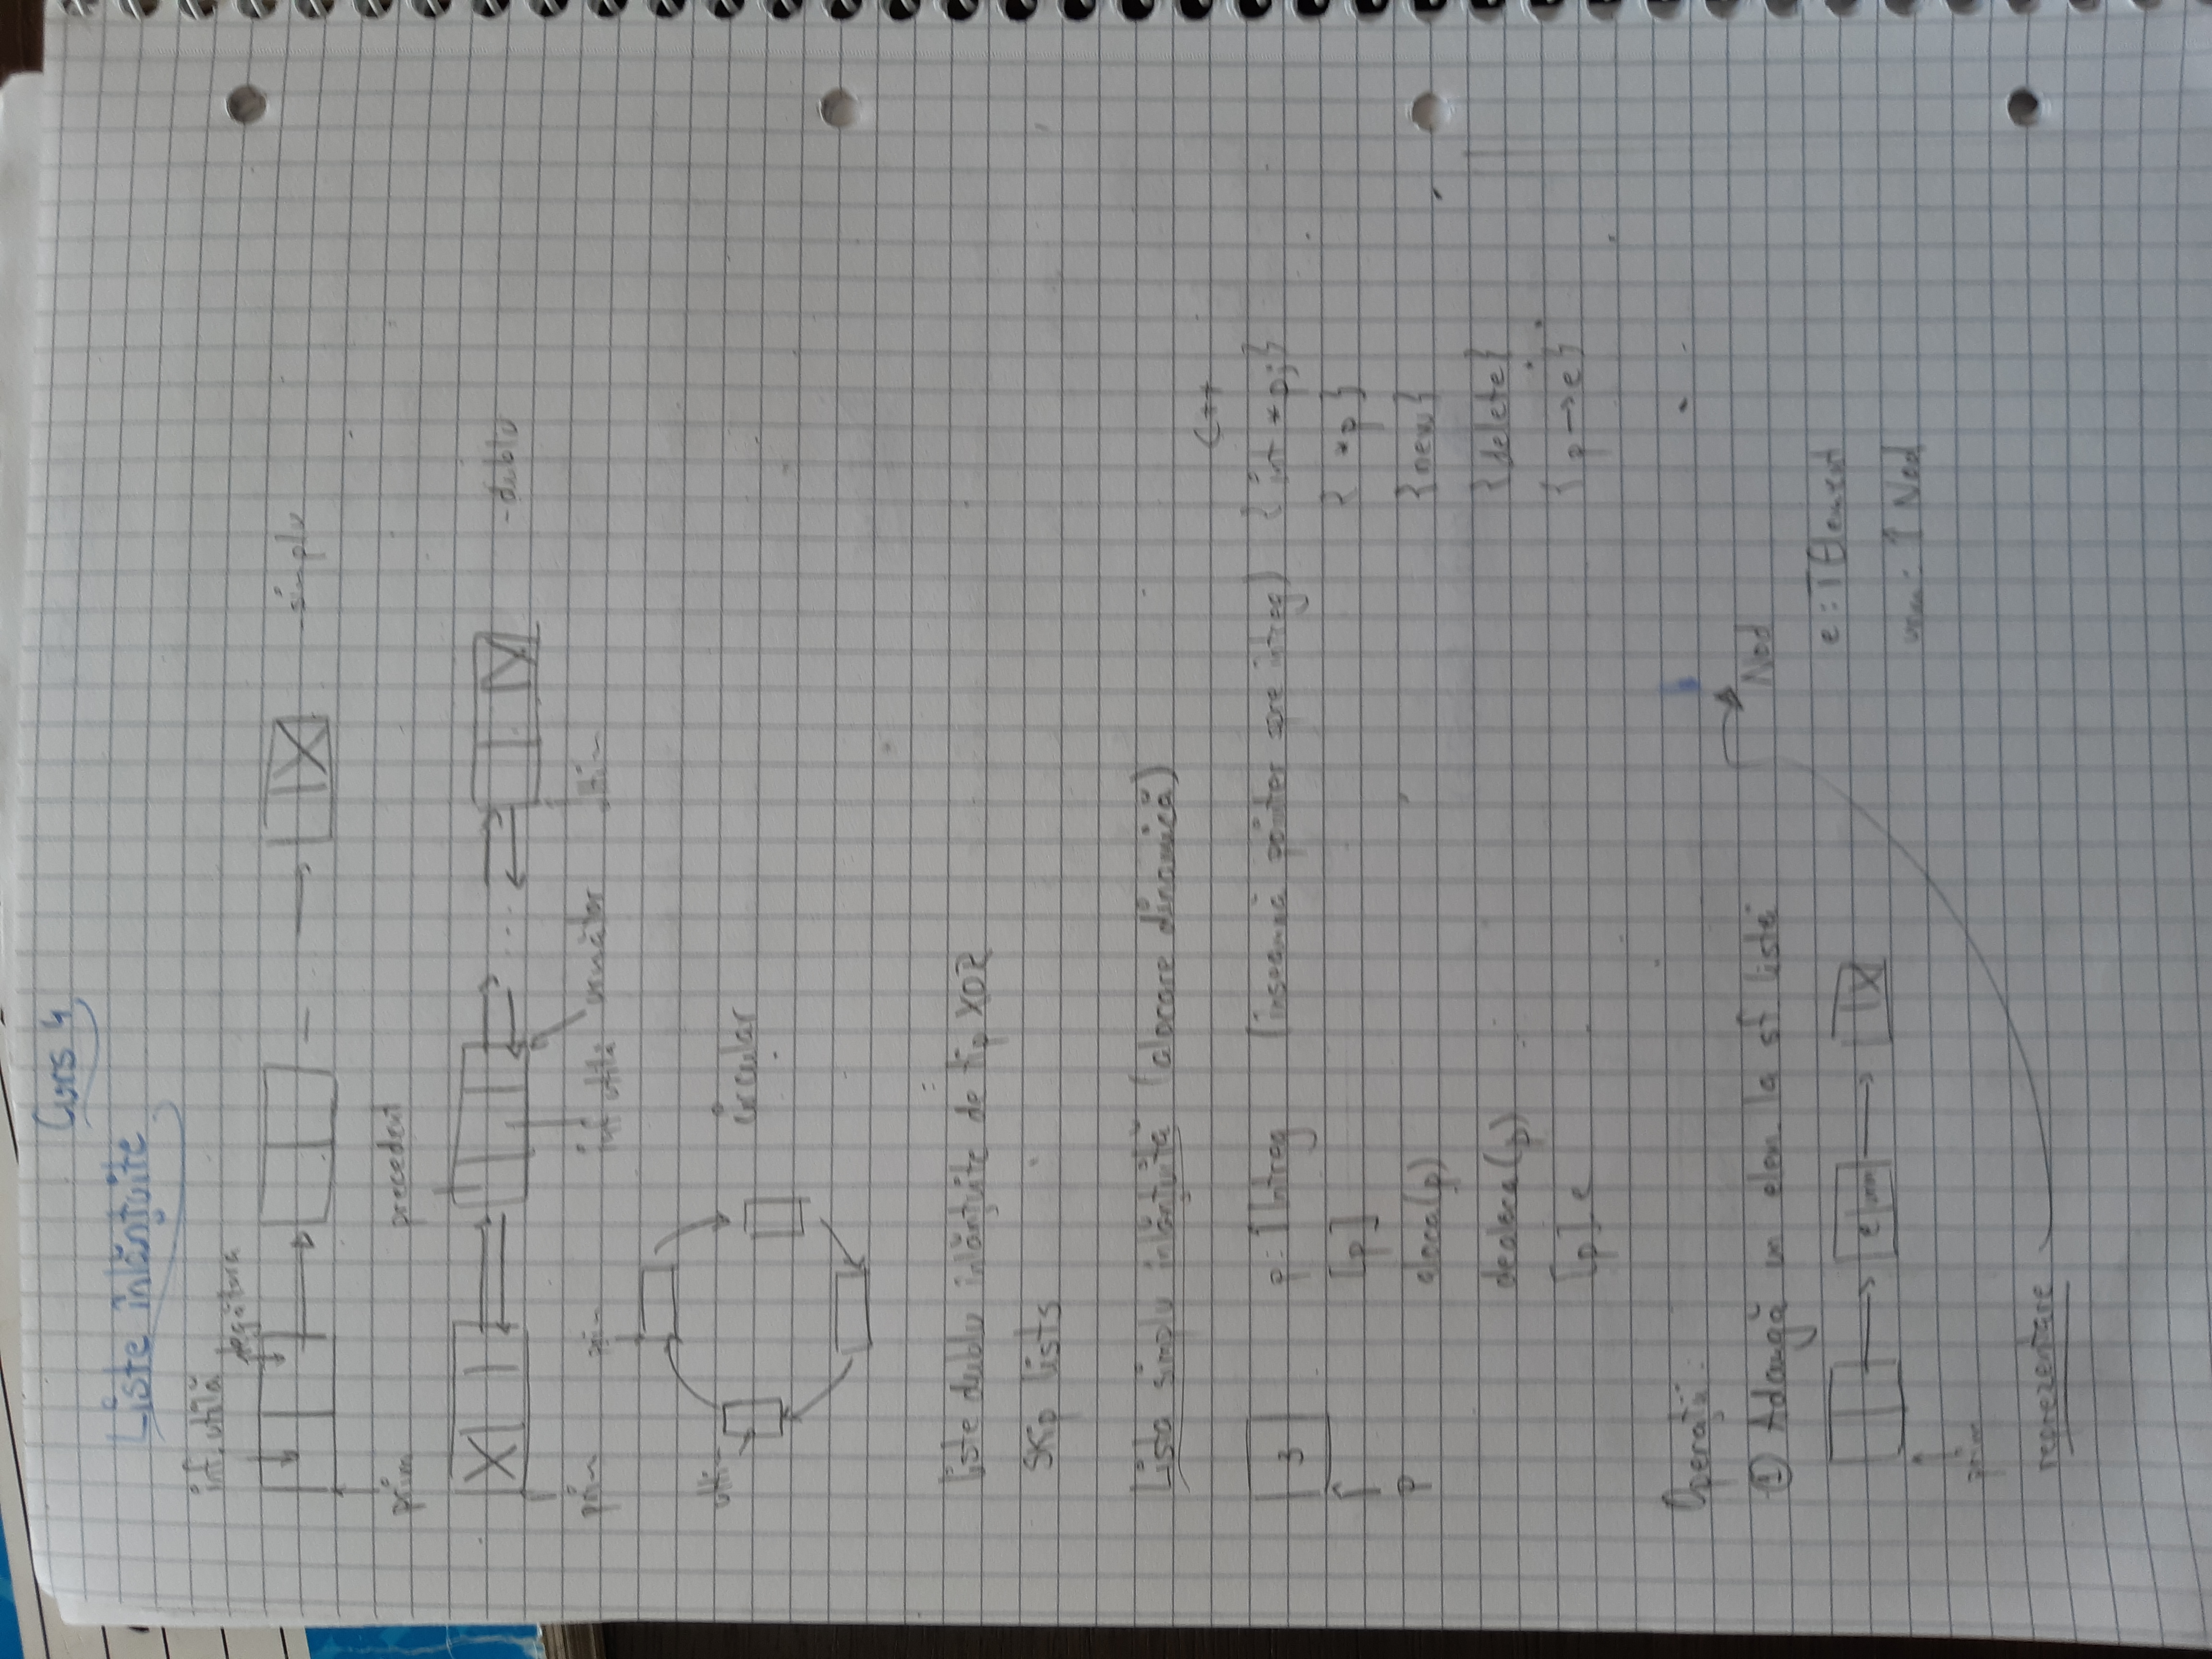 Curs 4
Liste înlănțuite
inf. utilă
legătura
-simplu
prim
precedent
-dublu
prim prim inf utilă următor ultim
ultim
circular
liste dublu înlănțuite de tip XOR
Skip lists
Lista simplu înlănțuită (alocare dinamică)
C++
3 p: ↑Intreg (înseamnă pointer spre intreg) { int *p; }
[p] { *p }
p aloca(p) {new}
dealoca(p) {delete}
[p].e { p→e }
Operații:
① Adaugă un elem. la sf. listei
Nod
e : TElement
e urm
urm: ↑ Nod
prim
reprezentare